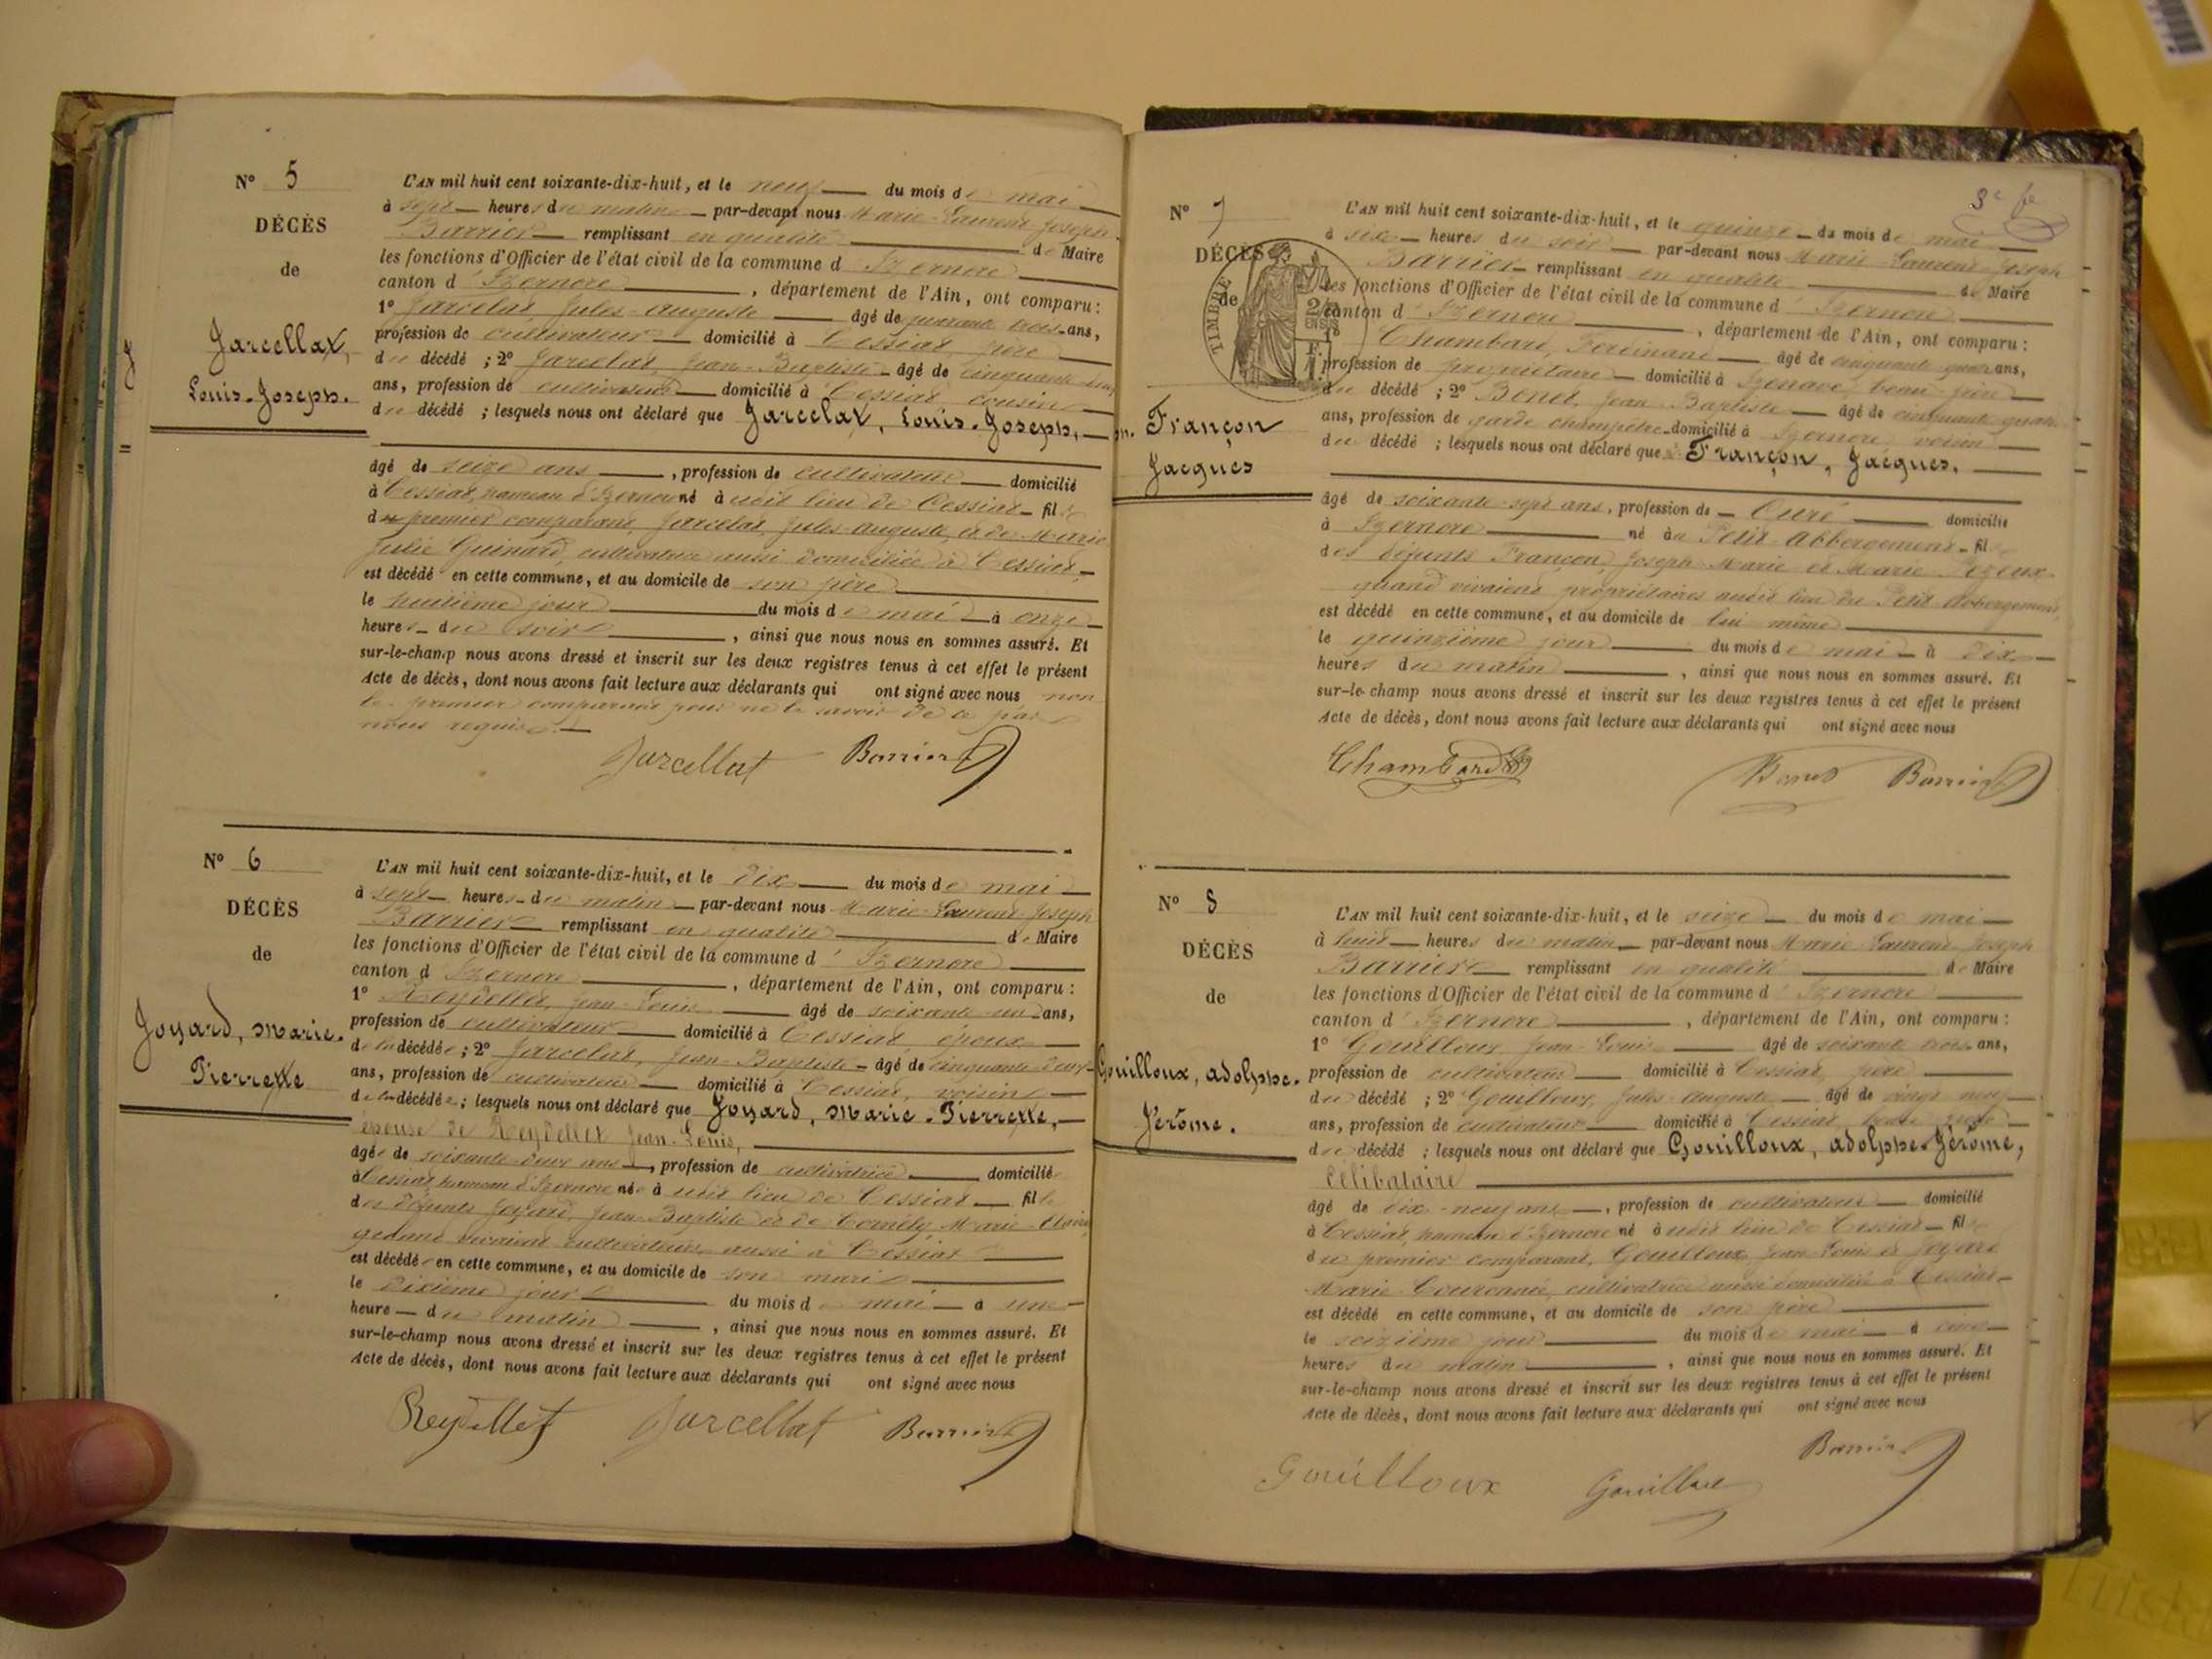 N° 5
DÉCÈS
de
Jarcellat,
Louis-Joseph.
L'AN mil huit cent soixante-dix-huit, et le neuf du mois de mai
à sept heures du matin par-devant nous Marie-Laurent Joseph
Barrier remplissant en qualité de Maire
les fonctions d'Officier de l'état civil de la commune d'Izernore
canton d'Izernore, département de l'Ain, ont comparu :
1° Jarcelat, Jules-auguste âgé de quarante trois ans,
profession de cultivateur domicilié à Cessiat père
du décédé ; 2° Jarcelat, Jean-Baptiste âgé de cinquante un
ans, profession de cultivateur domicilié à Cessiat cousin
du décédé ; lesquels nous ont déclaré que Jarcelat, Louis-Joseph,
âgé de seize ans, profession de cultivateur domicilié
à Cessiat, hameau d'Izernore né à udit lieu de Cessiat fils
du premier comparant, Jarcelat, Jules-auguste, et de Marie
Julie Guinard, cultivateur aussi domiciliée à Cessiat
est décédé en cette commune, et au domicile de son père
le huitième jour du mois de mai à onze
heures du soir, ainsi que nous nous en sommes assuré. Et
sur-le-champ nous avons dressé et inscrit sur les deux registres tenus à cet effet le présent
Acte de décès, dont nous avons fait lecture aux déclarants qui ont signé avec nous non
le premier comparant pour ne le savoir de ce par
nous requis.
Jarcellat Barrier
N° 6
DÉCÈS
de
Joyard, Marie.
Pierrette
L'AN mil huit cent soixante-dix-huit, et le dix du mois de mai
à sept heures du matin par-devant nous Marie-Laurent Joseph
Barrier remplissant en qualité de Maire
les fonctions d'Officier de l'état civil de la commune d'Izernore
canton d Izernore, département de l'Ain, ont comparu :
1° Reydellet, Jean-Louis âgé de soixante un ans,
profession de cultivateur domicilié à Cessiat, époux
de la décédée ; 2° Jarcelat, Jean-Baptiste âgé de cinquante deux
ans, profession de cultivateur domicilié à Cessiat, voisin
de la décédée ; lesquels nous ont déclaré que Joyard, Marie-Pierrette,
épouse de Reydellet Jean-Louis,
âgée de soixante-deux ans, profession de cultivatrice domiciliée
à Cessiat, hameau d'Izernore née à udit lieu de Cessiat fille
des défunts Joyard, Jean-Baptiste et de Marie
quand vivaient cultivateurs aussi à Cessiat
est décédée en cette commune, et au domicile de son mari
le dixième jour du mois de mai à une
heure du matin, ainsi que nous nous en sommes assuré. Et
sur-le-champ nous avons dressé et inscrit sur les deux registres tenus à cet effet le présent
Acte de décès, dont nous avons fait lecture aux déclarants qui ont signé avec nous
Reydellet Jarcellat Barrier
3e fe
N° 7
DÉCÈS
de
TIMBRE
Françon
Jacques
L'AN mil huit cent soixante-dix-huit, et le quinze du mois de mai
à six heures du soir par-devant nous Marie-Laurent-Joseph
Barrier remplissant en qualité de Maire
les fonctions d'Officier de l'état civil de la commune d'Izernore
canton d'Izernore, département de l'Ain, ont comparu :
1° Chambard, Ferdinand âgé de cinquante quatre ans,
profession de propriétaire domicilié à Izenave, beau-frère
du décédé ; 2° Benet, Jean-Baptiste âgé de cinquante quatre
ans, profession de garde champêtre domicilié à Izernore voisin
du décédé ; lesquels nous ont déclaré que Françon, Jacques,
âgé de soixante-sept ans, profession de Curé domicilié
à Izernore né au Petit-Abbergement fils
des défunts Françon, Joseph-Marie et Marie
quand vivaient propriétaires audit lieu du Petit Abbergement
est décédé en cette commune, et au domicile de lui même
le quinzième jour du mois de mai à dix
heures du matin, ainsi que nous nous en sommes assuré. Et
sur-le-champ nous avons dressé et inscrit sur les deux registres tenus à cet effet le présent
Acte de décès, dont nous avons fait lecture aux déclarants qui ont signé avec nous
Chambard Benet Barrier
N° 8
DÉCÈS
de
Gouilloux, adolphe.
Jérôme.
L'AN mil huit cent soixante-dix-huit, et le seize du mois de mai
à huit heures du matin par-devant nous Marie-Laurent-Joseph
Barrier remplissant en qualité de Maire
les fonctions d'Officier de l'état civil de la commune d'Izernore
canton d'Izernore, département de l'Ain, ont comparu :
1° Gouilloux, Jean-Louis âgé de soixante trois ans,
profession de cultivateur domicilié à Cessiat, père
du décédé ; 2° Gouilloux, Jules-auguste âgé de vingt neuf
ans, profession de cultivateur domicilié à Cessiat
du décédé ; lesquels nous ont déclaré que Gouilloux, adolphe-Jérôme,
célibataire
âgé de dix-neuf ans, profession de cultivateur domicilié
à Cessiat, hameau d'Izernore né à udit lieu de Cessiat fils
du premier comparant, Gouilloux Jean-Louis et Joyard
Marie Couronné, cultivatrice aussi domiciliée à Cessiat
est décédé en cette commune, et au domicile de son père
le seizième jour du mois de mai à une
heures du matin, ainsi que nous nous en sommes assuré. Et
sur-le-champ nous avons dressé et inscrit sur les deux registres tenus à cet effet le présent
Acte de décès, dont nous avons fait lecture aux déclarants qui ont signé avec nous
Gouilloux Gouilloux Barrier